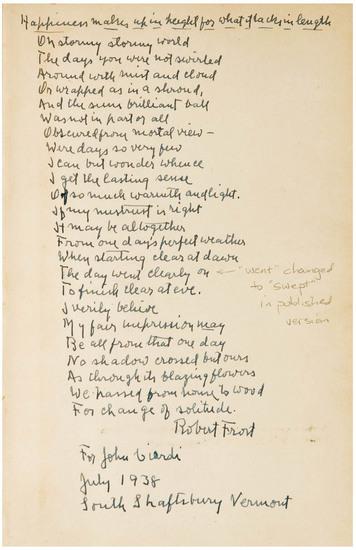 Happiness makes up in height for what it lacks in length
Oh stormy stormy world
The days you were not swirled
Around with mist and cloud
Or wrapped as in a shroud,
And the suns brilliant ball
Was not in part or all
Obscured from mortal view —
Were days so very few
I can but wonder whence
I get the lasting sense
Of so much warmth and light.
If my mistrust is right
It may be altogether
From one day's perfect weather
When starting clear at dawn
The day went clearly on ← "went" changed
to "swept"
in published
version
To finish clear at eve.
I verily believe
My fair impression may
Be all from that one day
No shadow crossed but ours
As through its blazing flowers
We passed from house to wood
For change of solitude.
Robert Frost
For John Ciardi
July 1938
South Shaftsbury Vermont